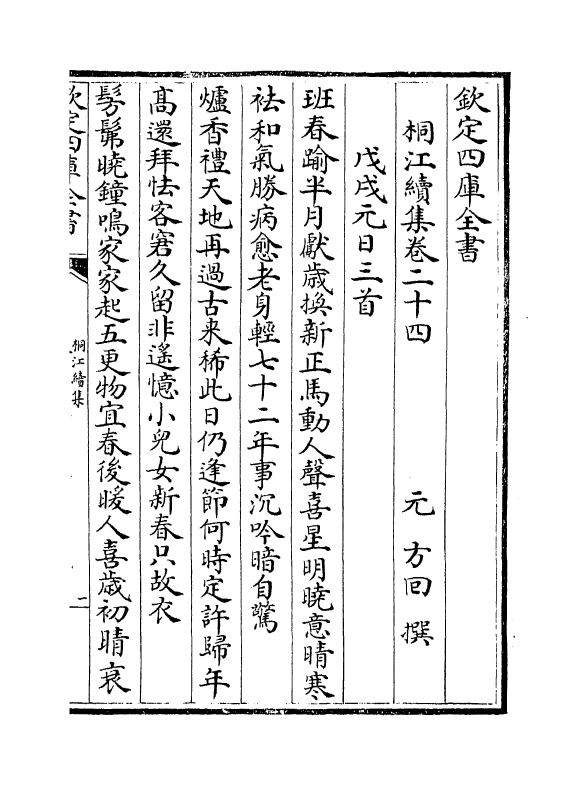 欽定四庫全書
桐江續集卷二十四
元 方回 撰
戊戌元日三首
班春踰半月獻歳換新正馬動人聲喜星明曉意晴寒
袪和氣勝病愈老身輕七十二年事沉吟暗自驚
爐香禮天地再過古来稀此日仍逢節何時定許歸年
髙還拜怯客窘久留非遙憶小兒女新春只故衣
髣髴曉鐘鳴家家起五更物宜春後暖人喜歳初晴衰
欽定四庫全書
桐江續集
二